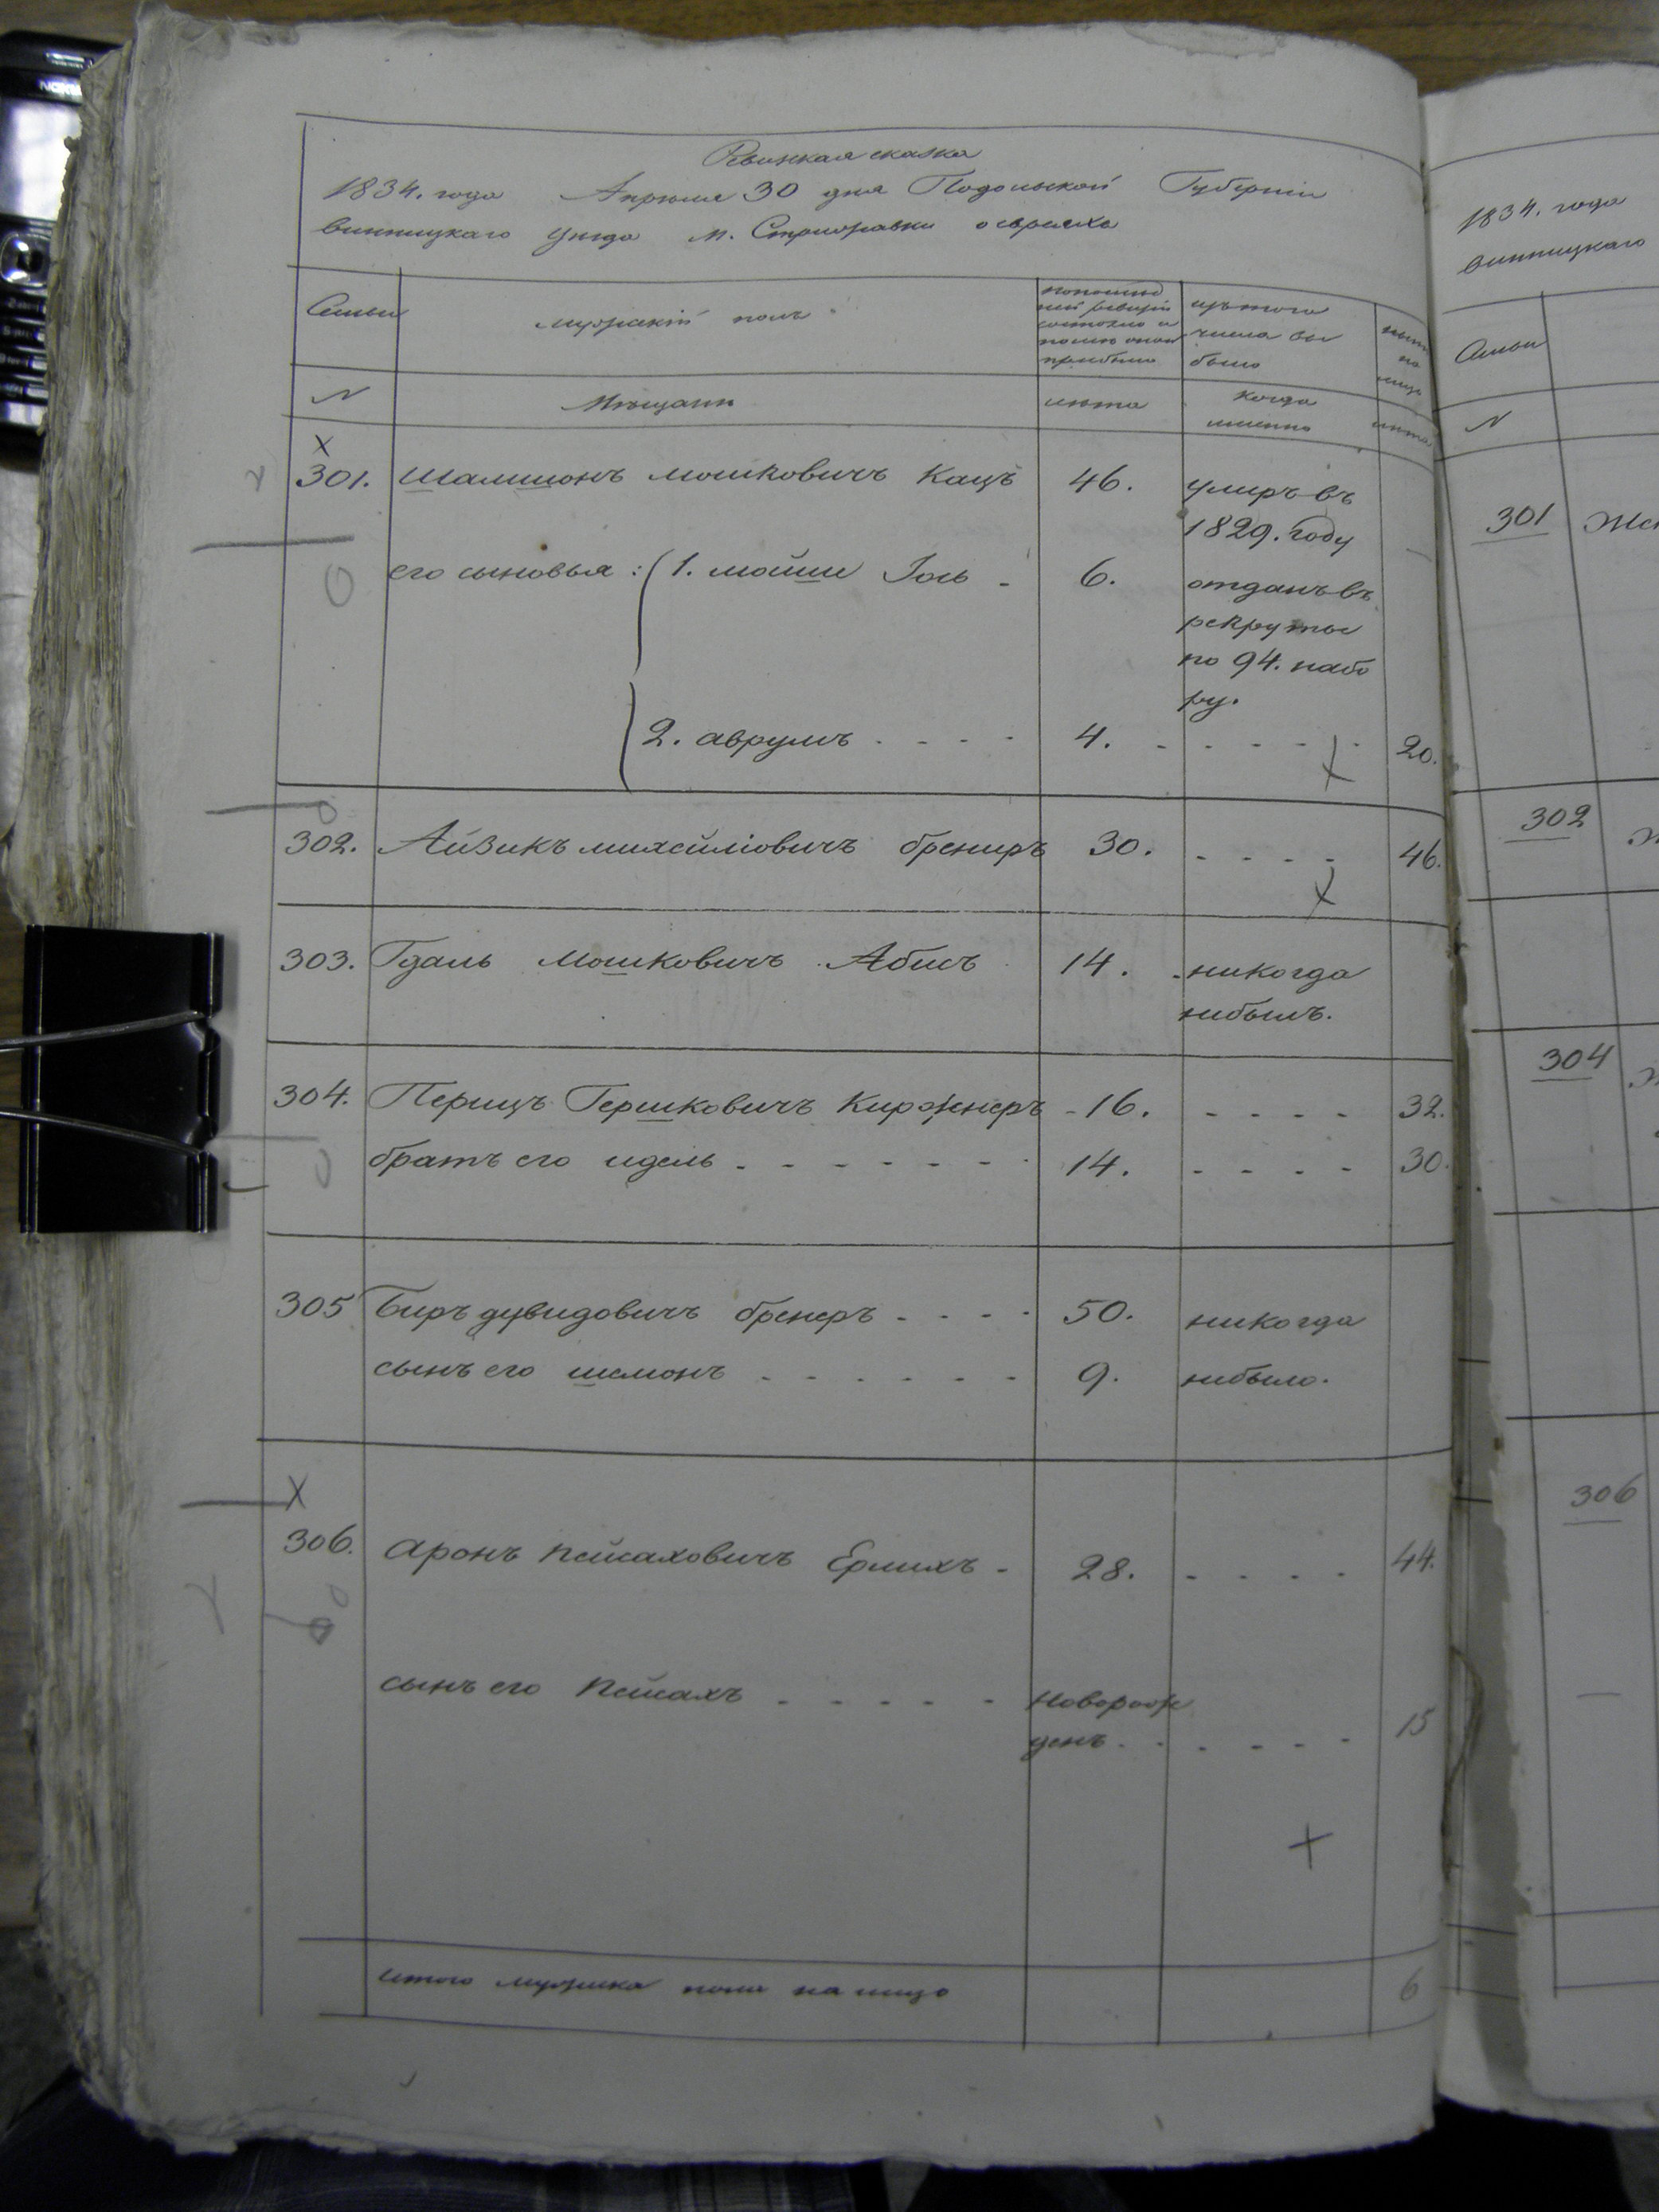 Ревизкая сказка
1834. года Апреля 30 дня Подольской Губернiи
винницкаго уезда м. Стрижавки о евреяхъ
Семьи мужскiй полъ
изъ того числа вы было
N Мещани лета когда именно лета
301. Шалимонъ мошковичъ Кацъ 46. умиръ въ
1829. году
его сыновья: 1. мойше Iось - 6. отданъ въ
рекруты
по 94. набо
ру.
2. аврумъ - - - - 4. - - - - - 20.
302. Айзикъ михейлiовичъ брениръ 30. - - - - 46.
303. Гдаль мошковичъ Абисъ 14. никогда
небылъ.
304. Перицъ Гершковичъ Киржнеръ - 16. - - - - 32.
братъ его идель - - - - - - - 14. - - - - 30.
305 Биръ дувидовичъ бренеръ - - - - 50. никогда
сынъ его шемонъ - - - - - - 9. небыло.
306. аронъ пейсаховичъ Ерлихъ - 28. - - - - 44.
сынъ его пейсахъ - - - - - новорож
денъ - - - - - - 15
итого мужеска пола на лицо 6
1834. года
винницкаго
Семьи
N
301
302
304
306